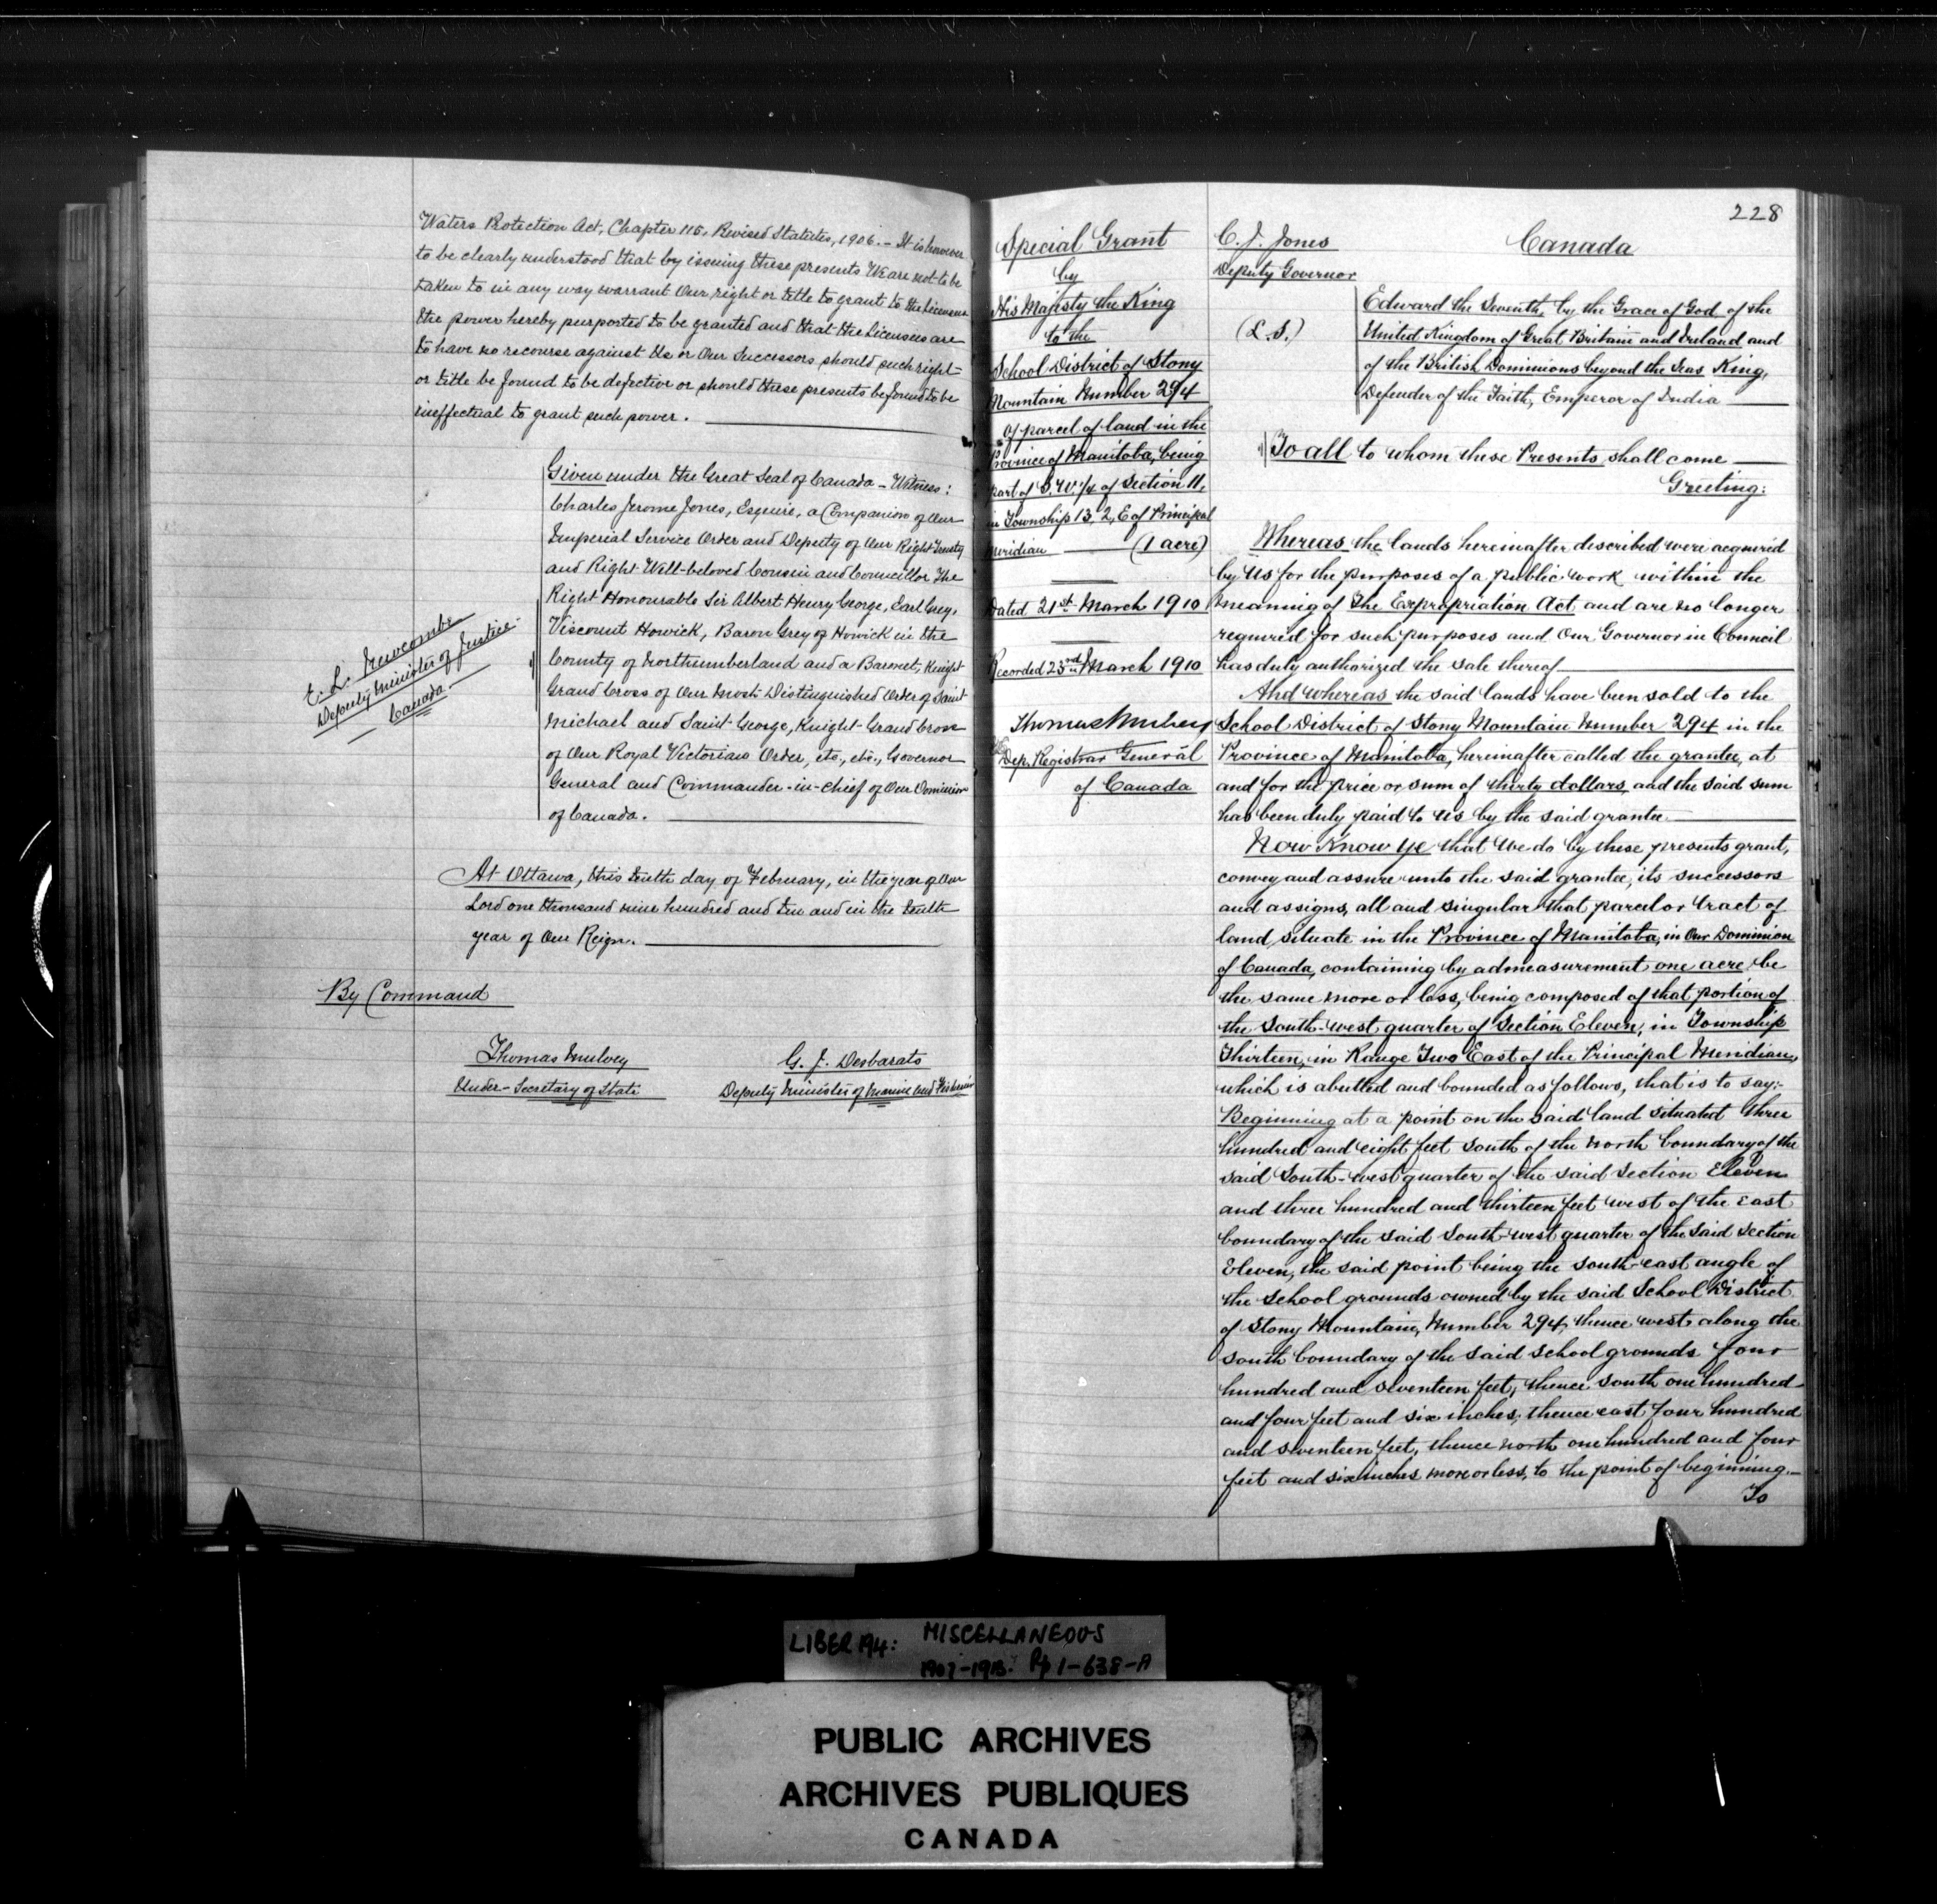 Waters Protection Act, Chapter 115, Revised Statutes, 1906. – It is however
to be clearly understood that by issuing these presents We are not to be
taken to in any way warrant Our right or title to grant to the Licensees
the power hereby purported to be granted and that the Licensees are
to have no recourse against Us or Our Successors should such right
or title be found to be defective or should these presents be found to be
ineffectual to grant such power.
Given under the Great Seal of Canada – Witness:
Charles Jerome Jones, Esquire, a Companion of Our
Imperial Service Order and Deputy of Our Right Trusty
and Right Well-beloved Cousin and Councillor The
Right Honourable Sir Albert Henry George, Earl Grey,
Viscount Howick, Baron Grey of Howick in the
County of Northumberland and a Baronet, Knight
Grand Cross of Our Most Distinguished Order of Saint
Michael and Saint George, Knight Grand Cross
of Our Royal Victorian Order, etc., etc., Governor
General and Commander-in-Chief of Our Dominion
of Canada.
E. L. Newcombe
Deputy Minister of Justice
Canada
At Ottawa, this tenth day of February, in the year of Our
Lord one thousand nine hundred and ten and in the tenth
year of Our Reign.
By Command
Thomas Mulvey
Under-Secretary of State
G. J. Desbarats
Deputy Minister of Marine and Fisheries
228
Special Grant
by
His Majesty the King
to the
School District of Stony
Mountain Number 294
of parcel of land in the
Province of Manitoba, being
part of S.W.1/4 of Section 11,
in Township 13, 2, E of Principal
Meridian (1 acre)
Dated 21st March 1910
Recorded 23rd March 1910
Thomas Mulvey
Dep. Registrar General
of Canada
C. J. Jones
Deputy Governor
Canada
(L.S.)
Edward the Seventh, by the Grace of God, of the
United Kingdom of Great Britain and Ireland and
of the British Dominions beyond the Seas King,
Defender of the Faith, Emperor of India
To all to whom these Presents shall come
Greeting:
Whereas the lands hereinafter described were acquired
by Us for the purposes of a public work within the
meaning of The Expropriation Act and are no longer
required for such purposes and Our Governor in Council
has duly authorized the sale thereof
And whereas the said lands have been sold to the
School District of Stony Mountain Number 294 in the
Province of Manitoba, hereinafter called the grantee, at
and for the price or sum of thirty dollars, and the said sum
has been duly paid to Us by the said grantee
Now Know Ye that We do by these presents grant,
convey and assure unto the said grantee, its successors
and assigns, all and singular that parcel or tract of
land, situate in the Province of Manitoba, in Our Dominion
of Canada, containing by admeasurement one acre, be
the same more or less, being composed of that portion of
the South-west quarter of Section Eleven, in Township
Thirteen, in Range Two East of the Principal Meridian,
which is abutted and bounded as follows, that is to say:-
Beginning at a point on the said land situated three
hundred and eight feet South of the North boundary of the
said South-west quarter of the said Section Eleven
and three hundred and thirteen feet west of the East
boundary of the said South west quarter of the said Section
Eleven, the said point being the south-east angle of
the School grounds owned by the said School District
of Stony Mountain, Number 294, thence west along the
south boundary of the said School grounds four
hundred and seventeen feet, thence South one hundred
and four feet and six inches, thence east four hundred
and seventeen feet, thence north one hundred and four
feet and six inches more or less, to the point of beginning.
To
LIBER 194: MISCELLANEOUS
1907-1913. Pp 1-638-A
PUBLIC ARCHIVES
ARCHIVES PUBLIQUES
CANADA